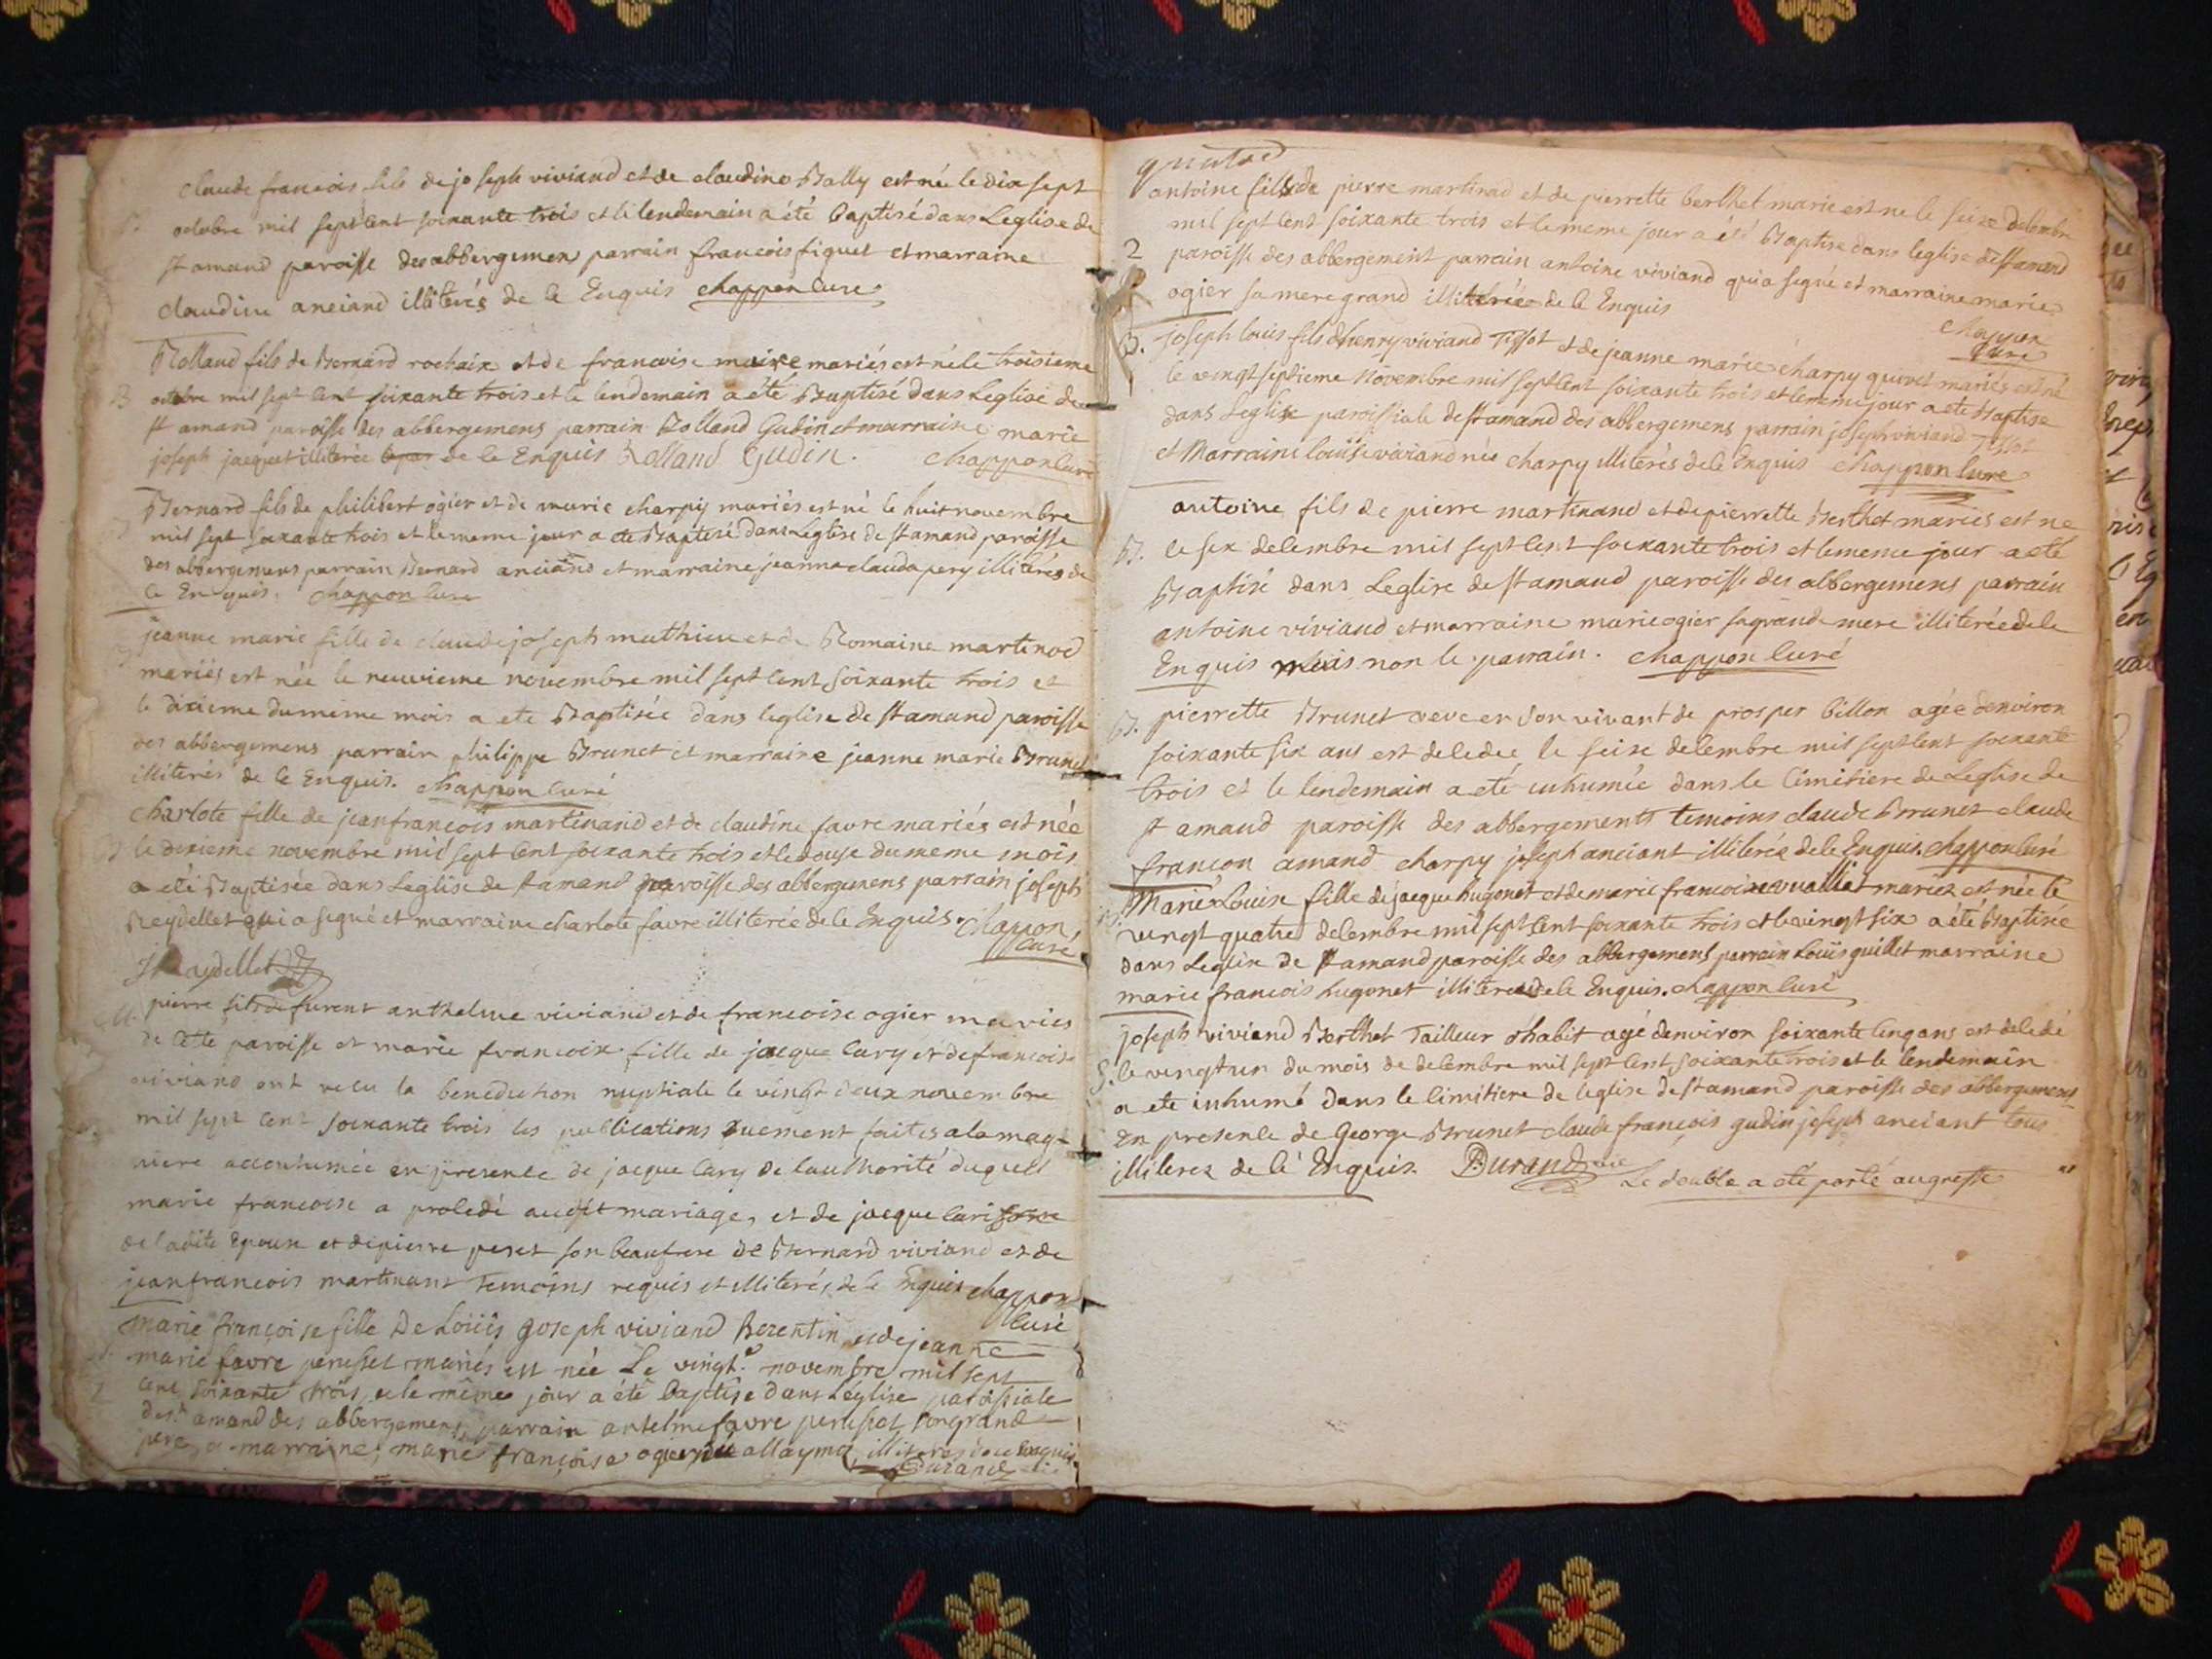 claude francois fils de joseph viviand et de claudine Bally est née le dix sept
octobre mil sept cent soixante trois et le lendemain a été baptisé dans Leglise de
st amand paroisse des abbergemen parrain francois figuet et marraine
claudine anciand illiterés de ce Enquis chappon curé
Rolland fils de Bernard rochaix et de francoise maire mariés est né le troisieme
B octobre mil sept cent soixante trois et le lendemain a été Baptisé dans Leglise de
st amand paroisse des abbergemens parrain Rolland Gudin et marraine marie
joseph jacquet illiterée de ce Enquis Rolland Gudin. chappon curé
Bernard fils de philibert ogier et de marie charpy mariés est né le huit novembre
mil sept soixante trois et le meme jour a ete Baptisé dans Leglise de st amand paroisse
des abbergemens parrain Bernard anciand et marraine jeanne claude pery illiterés de
ce Enquis. chappon curé
jeanne marie fille de claude joseph mathieu et de Romaine martinod
mariés est née le neuvieme novembre mil sept cent soixante trois et
le dixieme du meme mois a ete Baptisée dans leglise de st amand paroisse
des abbergemens parrain philippe Brunet et marraine jeanne marie Brunet
illiterés de ce Enquis. chappon curé
charlote fille de jean francois martinand et de claudine favre mariés est née
B le dixieme novembre mil sept cent soixante trois et le douze du meme mois
a eté Baptisée dans Leglise de st amand paroisse des abbergemens parrain joseph
Reydellet qui a signé et marraine charlote favre illiterée de ce Enquis. Chappon
curé
J Reydellet
M. pierre fils de furent anthelme viviand et de francoise ogier maries
de cette paroisse et marie francoise fille de jacque cary et de francoise
viviand ont recu la benediction nuptiale le vingt deux novembre
mil sept cent soixante trois les publications duement faites a la mag
niere accoutumée en presence de jacque cary de lauthorité duquel
marie francoise a procedé audit mariage, et de jacque cari
de ladite Epouse et de pierre peret son beaufrere de Bernard viviand et de
jean francois martinant Temoins requis et illiterés de ce Enquis chappon
curé
marie françoise fille De Loüis Joseph viviand Rezentin et de jeanne
marie favre perusset mariés est née Le vingt novembre mil sept
cent soixante trois, et le même jour a été baptise dans Léglise paroissiale
de st amand des abbergemens parrain antelme favre perusset son grand
pere, et marraine, marie françoise ogier allayma, illiteres de ce Enquis
Durand
quatre
antoine fils de pierre martinad et de pierrette berthet marie est ne le seize decembre
mil sept cent soixante trois et le meme jour a été Baptise dans leglise de st amand
2 paroisse des abbergement parrain antoine viviand qui a signé et marraine marie
ogier sa mere grand illiterée de ce Enquis
chappon
curé
B. joseph louis fils d henry viviand Tissot et de jeanne marie charpy quivet mariés est né
le vingt septieme Novembre mil sept cent soixante trois et le meme jour a ete Baptise
dans leglise paroissiale de st amand des abbergemens parrain joseph viviand Tissot
et Marraine loüise viviand née charpy illiterés de ce Enquis chappon curé
antoine fils de pierre martinand et de pierrette Berthet mariés est né
B. le six decembre mil sept cent soixante trois et le meme jour a eté
Baptisé dans Leglise de st amand paroisse des abbergemens parrain
antoine viviand et marraine marie ogier sa grande mere illiterée de ce
Enquis mais non le parrain. chappon curé
B. pierrette Brunet veve en son vivant de prosper billon agée denviron
soixante six ans est decedée le seise decembre mil sept cent soixante
trois et le lendemain a eté inhumée dans le cimitiere de Leglise de
st amand paroisse des abbergements temoins claude Brunet claude
francon amand charpy joseph anciant illiterés de ce Enquis. chappon curé
Marie Louise fille de jacque hugonet et de marie francoise vualliet mariez est née le
vingt quatre decembre mil sept cent soixante trois et le vingt six a été Baptisée
dans Leglise de st amand paroisse des abbergemens parrain Loüis guillet marraine
marie francois hugonet illiterés de ce Enquis. chappon curé
joseph viviand Berthet Tailleur d'habit agé denviron soixante cinq ans est decedé
S. le vingt un du mois de decembre mil sept cent soixante trois et le lendemain
a ete inhumé dans le cimitiere de leglise de st amand paroisse des abbergemens
En presence de George Brunet claude françois gudin joseph anciant tous
illiterez de ce Enquis. Durand vic Le double a eté porté au greffe